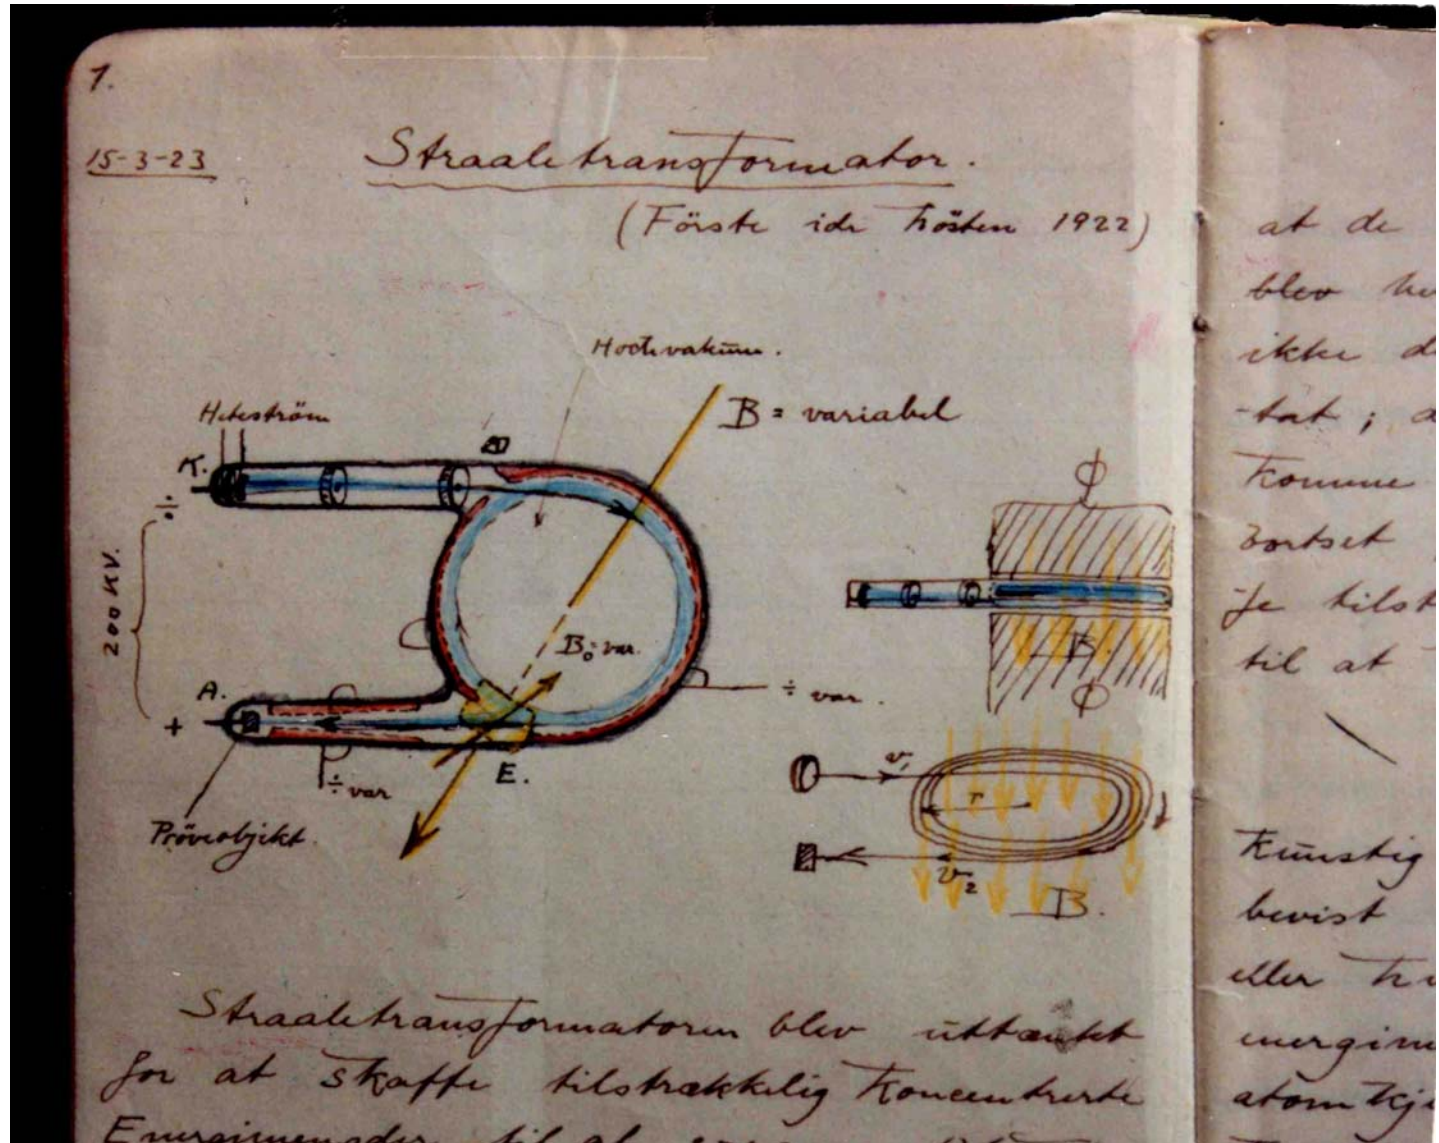 1.
15-3-23
Straaletransformator.
(Förste ide hösten 1922)
Hochvakuum.
Heteström
B = variabel
K.
÷
200 KV.
B₀ = var.
A.
+
÷ var.
÷ var
E.
Pröveobjekt.
ϕ
B.
ϕ
v₁
r
v₂
B.
Straaletransformatoren blev uttænkt
for at skaffe tilstrækkelig koncentrerte
at de
blev
ikke
-tat ;
komme
bortset
je tilst
til at
kunstig
bevist
eller
energim
atomkj